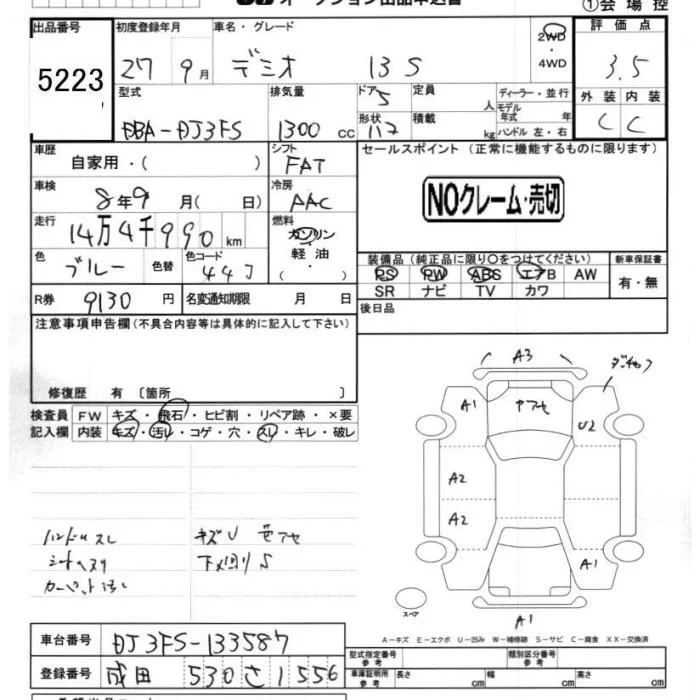 オークション出品申込書
①会場控
出品番号 初度登録年月 車名・グレード 2WD・4WD 評価点
5223 27 9月 デミオ 13S 3.5
型式 排気量 ドア 定員 ディーラー・並行 外装 内装
DBA-DJ3FS 1300 cc 5 人 モデル年式 年 C C
形状 積載 kg ハンドル 左・右
車歴 シフト セールスポイント (正常に機能するものに限ります)
自家用・( ) FAT
車検 8年9月( 日) 冷房 AAC
NOクレーム・売切
走行 14万4千990 km 燃料 ガソリン・軽油・( )
色 ブルー 色替 色コード 44J
装備品 (純正品に限り○をつけてください) 新車保証書
PS PW ABS エアB AW 有・無
SR ナビ TV カワ
R券 9130 円 名変通知期限 月 日 後日品
注意事項申告欄 (不具合内容等は具体的に記入して下さい)
修復歴 有 〔箇所 〕
検査員 FW キズ・飛石・ヒビ割・リペア跡・×要
記入欄 内装 キズ・汚レ・コゲ・穴・スレ・キレ・破レ
A3
A1 U2
A2
A2
A1
A1
ハンドルスレ キズU
下メ回りS
スペア
A-キズ E-エクボ U-凹み W-補修跡 S-サビ C-腐食 XX-交換済
車台番号 DJ3FS-133587
型式指定番号 参考 類別区分番号 参考
登録番号 成田 530 さ 1556
車庫証明用 参考 長さ cm 幅 cm 高さ cm